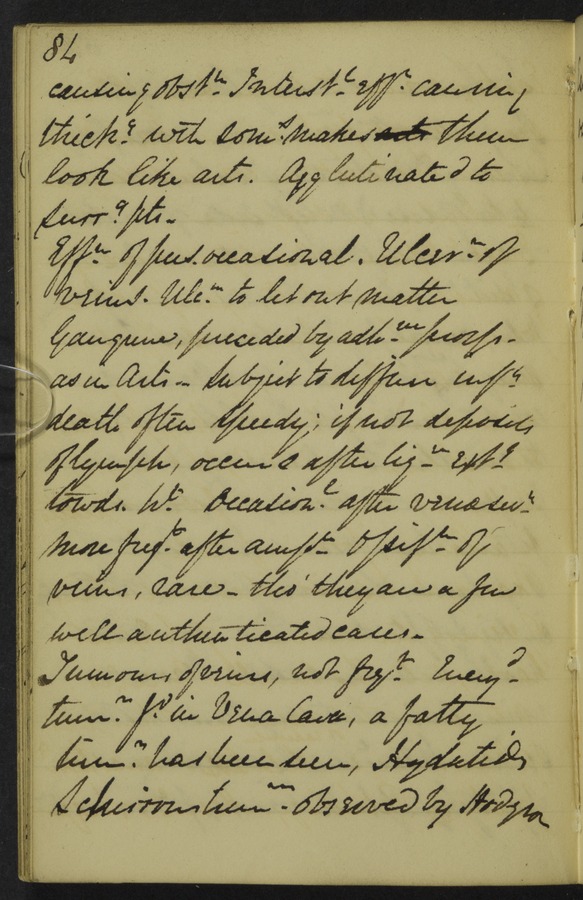 84
causing obstn. Interstl. effn. causing
thickg. wth som. makes them
look like arts. Agglutinated to
surrg. pts.
Effn. of pus occasional. Ulcern. of
veins. Ulcn. to let out matter
Gangrene, preceded by adhn.
as in Arts - Subject to diffuse infn.
death often speedy; if not deposits
of lymph, occurs after lign. extg.
towds. ht. Occasionl. after venesecn.
more freqt. after ampn. Ossifn. of
veins, rare - tho' they are a few
well authenticated cases.
Tumours of veins, not freqt. Encyd.
tumr. fd. in Vena Cava, a fatty
tumr. has been seen, Hydatids
Schirrous tumr. observed by Hodgson